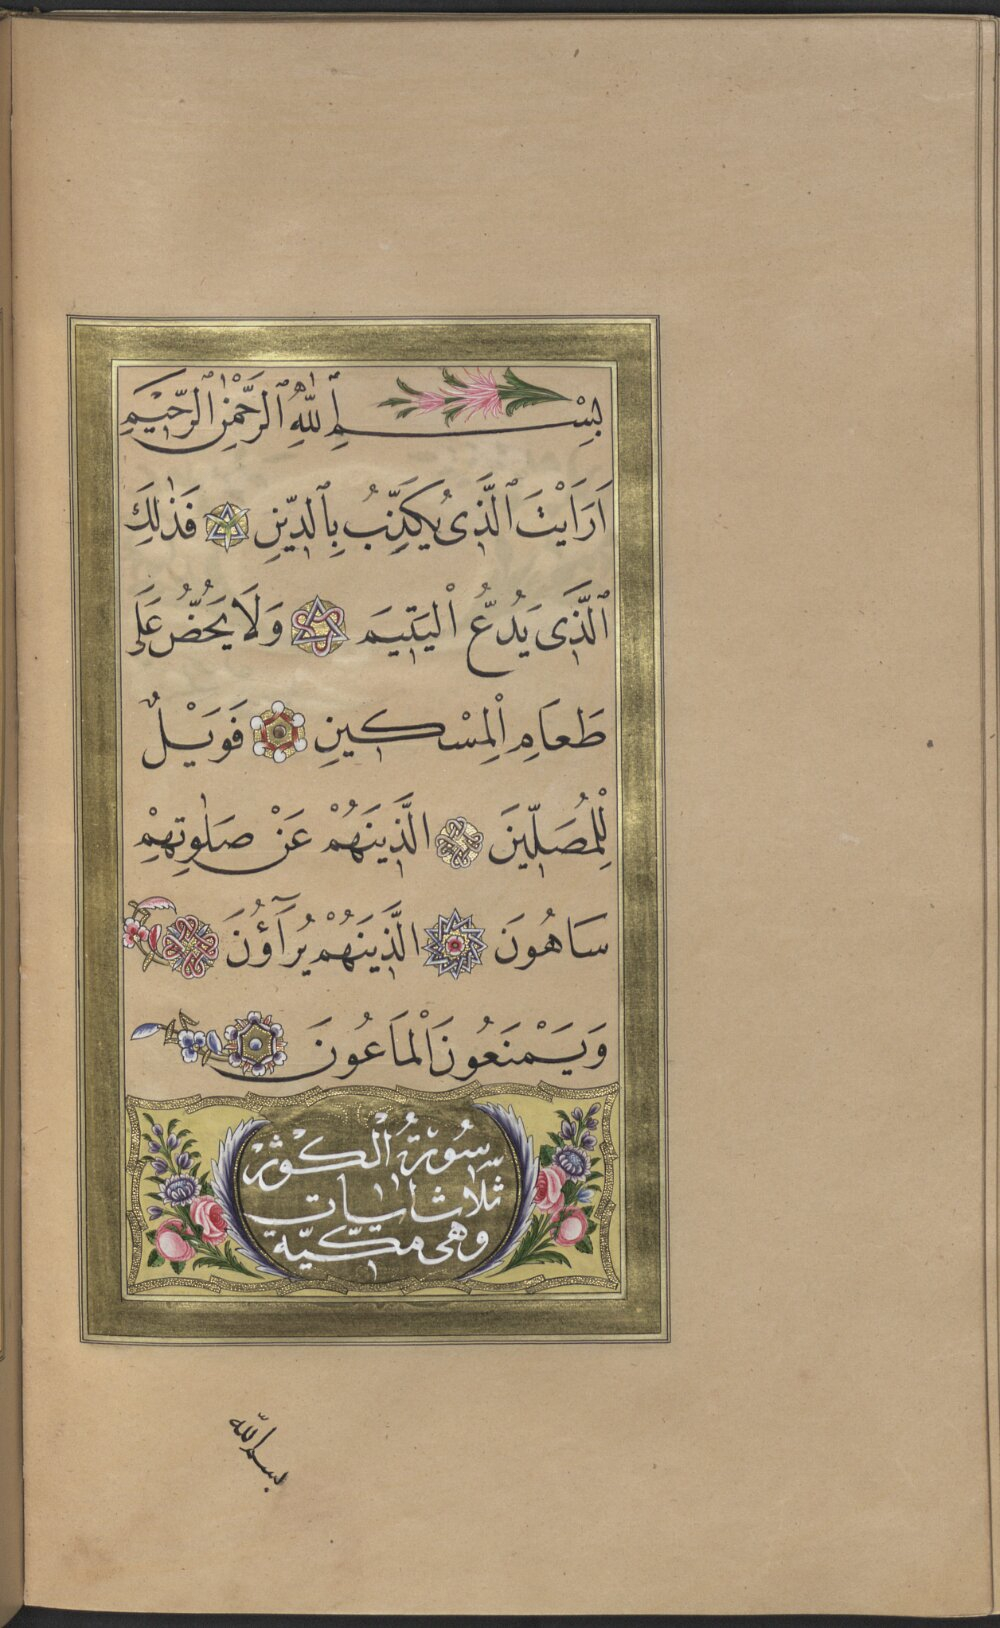 بِسْمِ ٱللّٰهِ ٱلرَّحْمٰنِ ٱلرَّحِيمِ
اَرَاَيْتَ ٱلَّذِى يُكَذِّبُ بِٱلدِّينِ فَذٰلِكَ
ٱلَّذِى يَدُعُّ الْيَتِيمَ وَلَا يَحُضُّ عَلَى
طَعَامِ الْمِسْكِينِ فَوَيْلٌ
لِلْمُصَلِّينَ الَّذِينَ هُمْ عَنْ صَلٰوتِهِمْ
سَاهُونَ الَّذِينَ هُمْ يُرَآؤُنَ
وَيَمْنَعُونَ الْمَاعُونَ
سُورَةُ الْكَوْثَرْ
ثَلَاثُ اٰيَاتٍ
وَهِىَ مَكِّيَّة
بسم الله